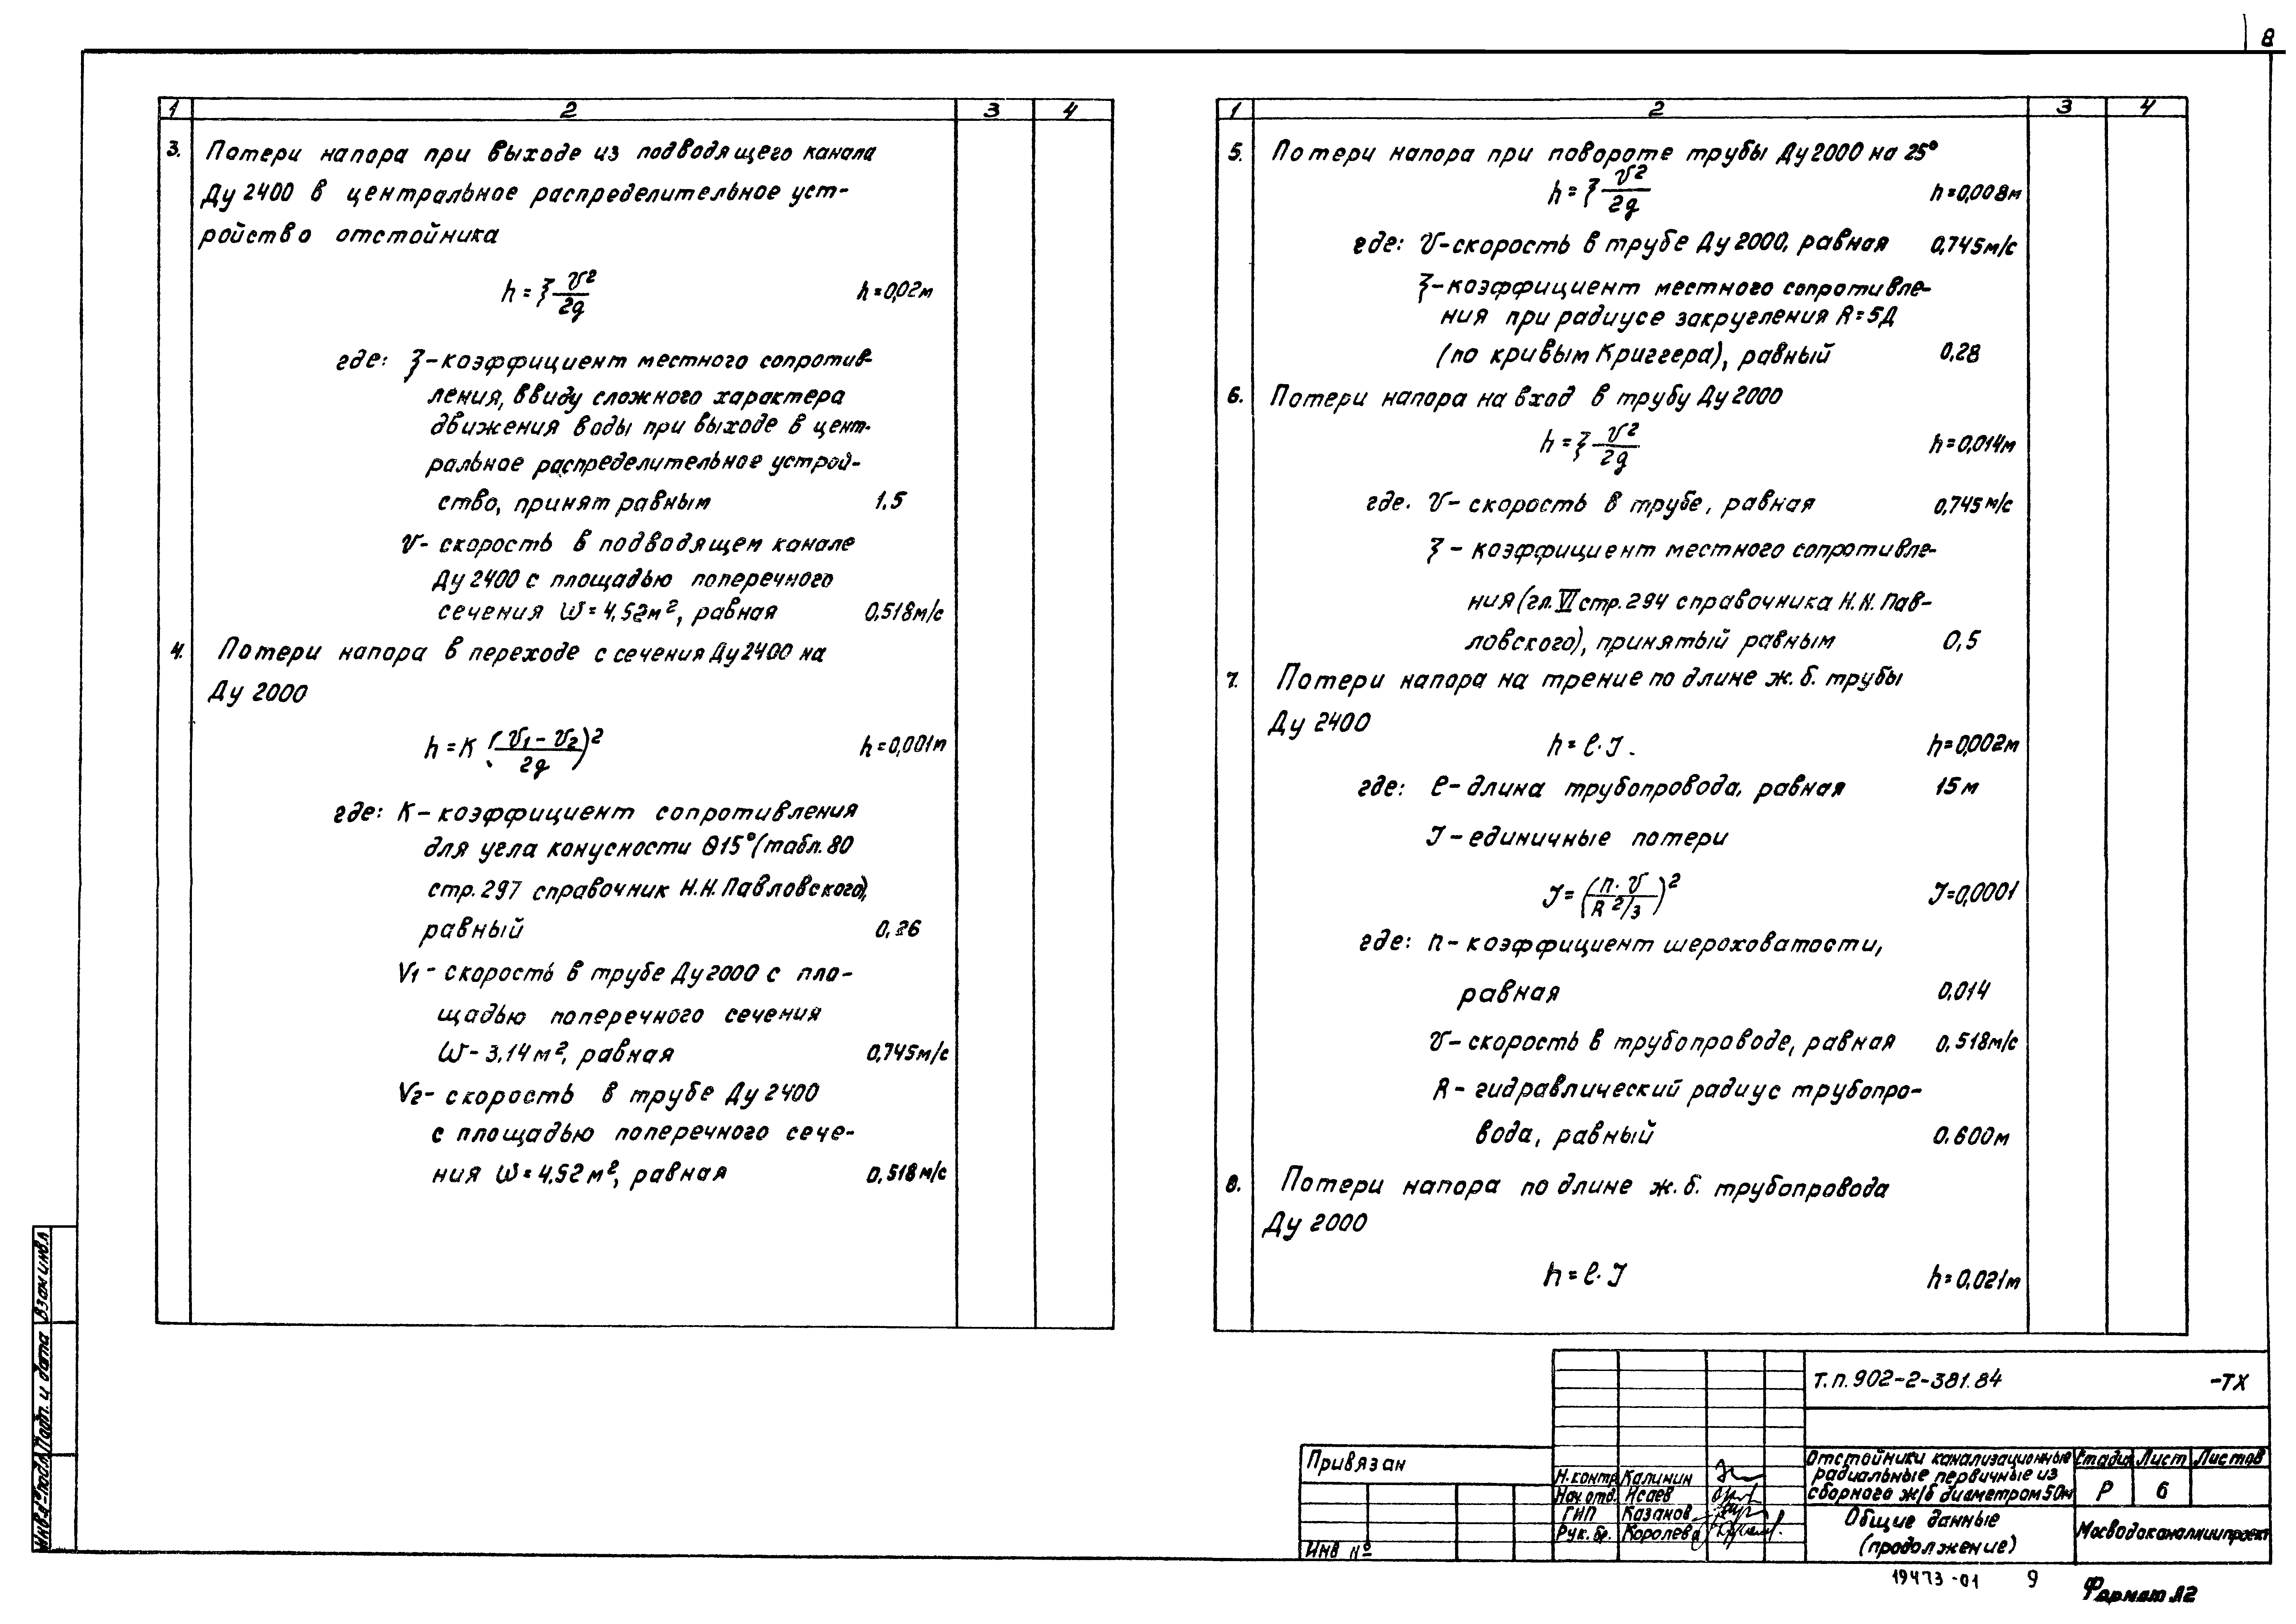 8
1 2 3 4
3. Потери напора при выходе из подводящего канала
Ду 2400 в центральное распределительное уст-
ройство отстойника
h = ξ v²/2g h=0,02м
где: ξ-коэффициент местного сопротив-
ления, ввиду сложного характера
движения воды при выходе в цент-
ральное распределительное устрой-
ство, принят равным 1.5
v- скорость в подводящем канале
Ду 2400 с площадью поперечного
сечения W= 4,52м², равная 0,518м/с
4. Потери напора в переходе с сечения Ду 2400 на
Ду 2000
h = K (v₁ - v₂/2g)² h=0,001м
где: К-коэффициент сопротивления
для угла конусности θ15°(табл.80
стр.297 справочник Н.Н.Павловского),
равный 0,26
V₁- скорость в трубе Ду 2000 с пло-
щадью поперечного сечения
W- 3,14м², равная 0,745м/с
V₂- скорость в трубе Ду 2400
с площадью поперечного сече-
ния W=4,52м², равная 0,518м/с
1 2 3 4
5. Потери напора при повороте трубы Ду 2000 на 25°
h = ξ v²/2g h=0,008м
где: v-скорость в трубе Ду 2000, равная 0,745м/с
ξ-коэффициент местного сопротивле-
ния при радиусе закругления R=5Д
(по кривым Криггера), равный 0,28
6. Потери напора на вход в трубу Ду 2000
h = ξ v²/2g h=0,014м
где. v- скорость в трубе, равная 0,745м/с
ξ - коэффициент местного сопротивле-
ния (гл. VI стр.294 справочника Н.Н.Пав-
ловского), принятый равным 0,5
7. Потери напора на трение по длине ж.б. трубы
Ду 2400
h = ℓ·J h=0,002м
где: ℓ-длина трубопровода, равная 15м
J-единичные потери
J = (n·v/R^2/3)² J=0,0001
где: n-коэффициент шероховатости,
равная 0,014
v-скорость в трубопроводе, равная 0,518м/с
R- гидравлический радиус трубопро-
вода, равный 0,600м
8. Потери напора по длине ж.б. трубопровода
Ду 2000
h = ℓ·J h=0,021м
Взам инв.л
Подп. и дата
Инв.№ подл.
Т.п.902-2-381.84 -ТХ
Привязан
Инв №
Н.контр. Калинин
Нач.отд. Исаев
ГИП Казанов
Рук.бр. Королева
Отстойники канализационные
радиальные первичные из
сборного ж/б диаметром 50м
Стадия Лист Листов
Р 6
Общие данные
(продолжение)
Мосводоканалниипроект
19473-01 9
Формат А2